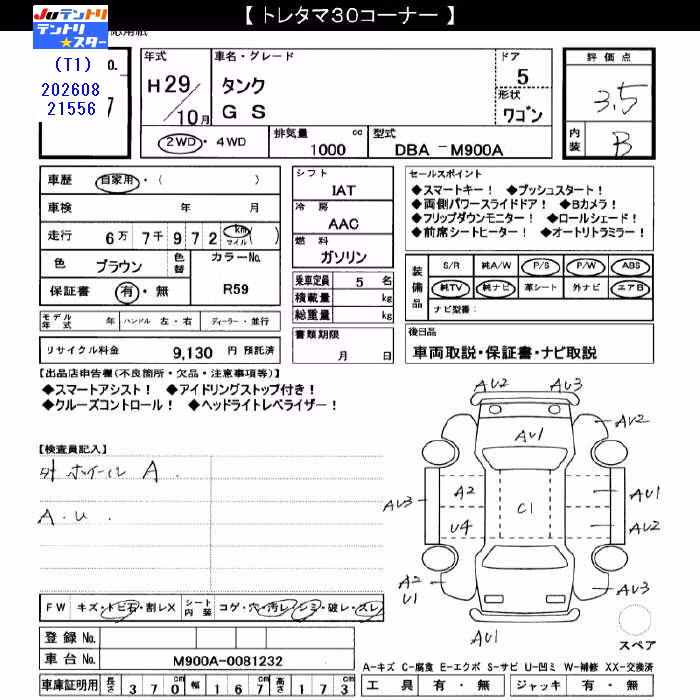 【 トレタマ30コーナー 】
JUテントリ
テントリ★スター
応用紙
(T1)
202608
21556
o.
7
年式
H29/10月
車名・グレード
タンク
GS
ドア
5
形状
ワゴン
評価点
3.5
内装
B
2WD・4WD
排気量 cc
1000
型式
DBA -M900A
車歴 自家用・( )
車検 年 月
走行 6万 7千 9 7 2 km マイル ( )
色 ブラウン 色替
カラーNo.
R59
保証書 有・無
シフト
IAT
冷房
AAC
燃料
ガソリン
乗車定員 5 名
積載量 kg
総重量 kg
セールスポイント
◆スマートキー! ◆プッシュスタート!
◆両側パワースライドドア! ◆Bカメラ!
◆フリップダウンモニター! ◆ロールシェード!
◆前席シートヒーター! ◆オートリトラミラー!
装備品
S/R 純A/W P/S P/W ABS
純TV 純ナビ 革シート 外ナビ エアB
ナビ型番:
モデル年式 年 ハンドル 左・右 ディーラー・並行
書類期限
月 日
後日品
車両取説・保証書・ナビ取説
リサイクル料金 9,130 円 預託済
【出品店申告欄(不良箇所・欠品・注意事項等)】
◆スマートアシスト! ◆アイドリングストップ付き!
◆クルーズコントロール! ◆ヘッドライトレベライザー!
【検査員記入】
外 ホイール A.
A.U.
AU2 AU3
AU2
AU1
AU3 A2 AU1
C1
U4 AU2
A2
U1
AU3
AU1
スペア
FW キズ・トビ石・割レX シート内装 コゲ・穴・汚レ・シミ・破レ・スレ
登録No.
車台No. M900A-0081232
A-キズ C-腐食 E-エクボ S-サビ U-凹ミ W-補修 XX-交換済
車庫証明用 長さ 370cm 幅 167cm 高さ 173cm
工具 有・無 ジャッキ 有・無